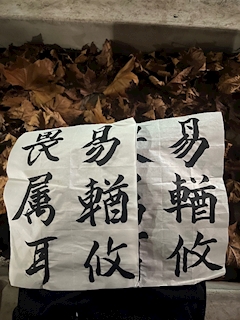 易輶攸
易輶攸
畏属耳